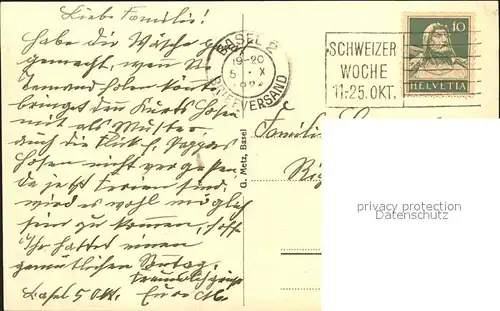 Liebe Familie!
habe die Wäsche ge-
gemacht, wenn Sie
Jemand holen könte
bringet den Kurts Hosen
mit als Muster,
auch die Flick f. Pappas
Hosen nicht vergessen.
Da jetzt Ferien sind
wird es wohl möglich
sein zu kommen, hoffe
Ihr hattet einen
gemütlichen Sontag,
Basel 5 Okt. Eure
BASEL 2
19-20
5. X
BRIEFVERSAND
SCHWEIZER
WOCHE
11.-25. OKT.
10
HELVETIA
G. Metz, Basel
Familie
privacy protection
Datenschutz